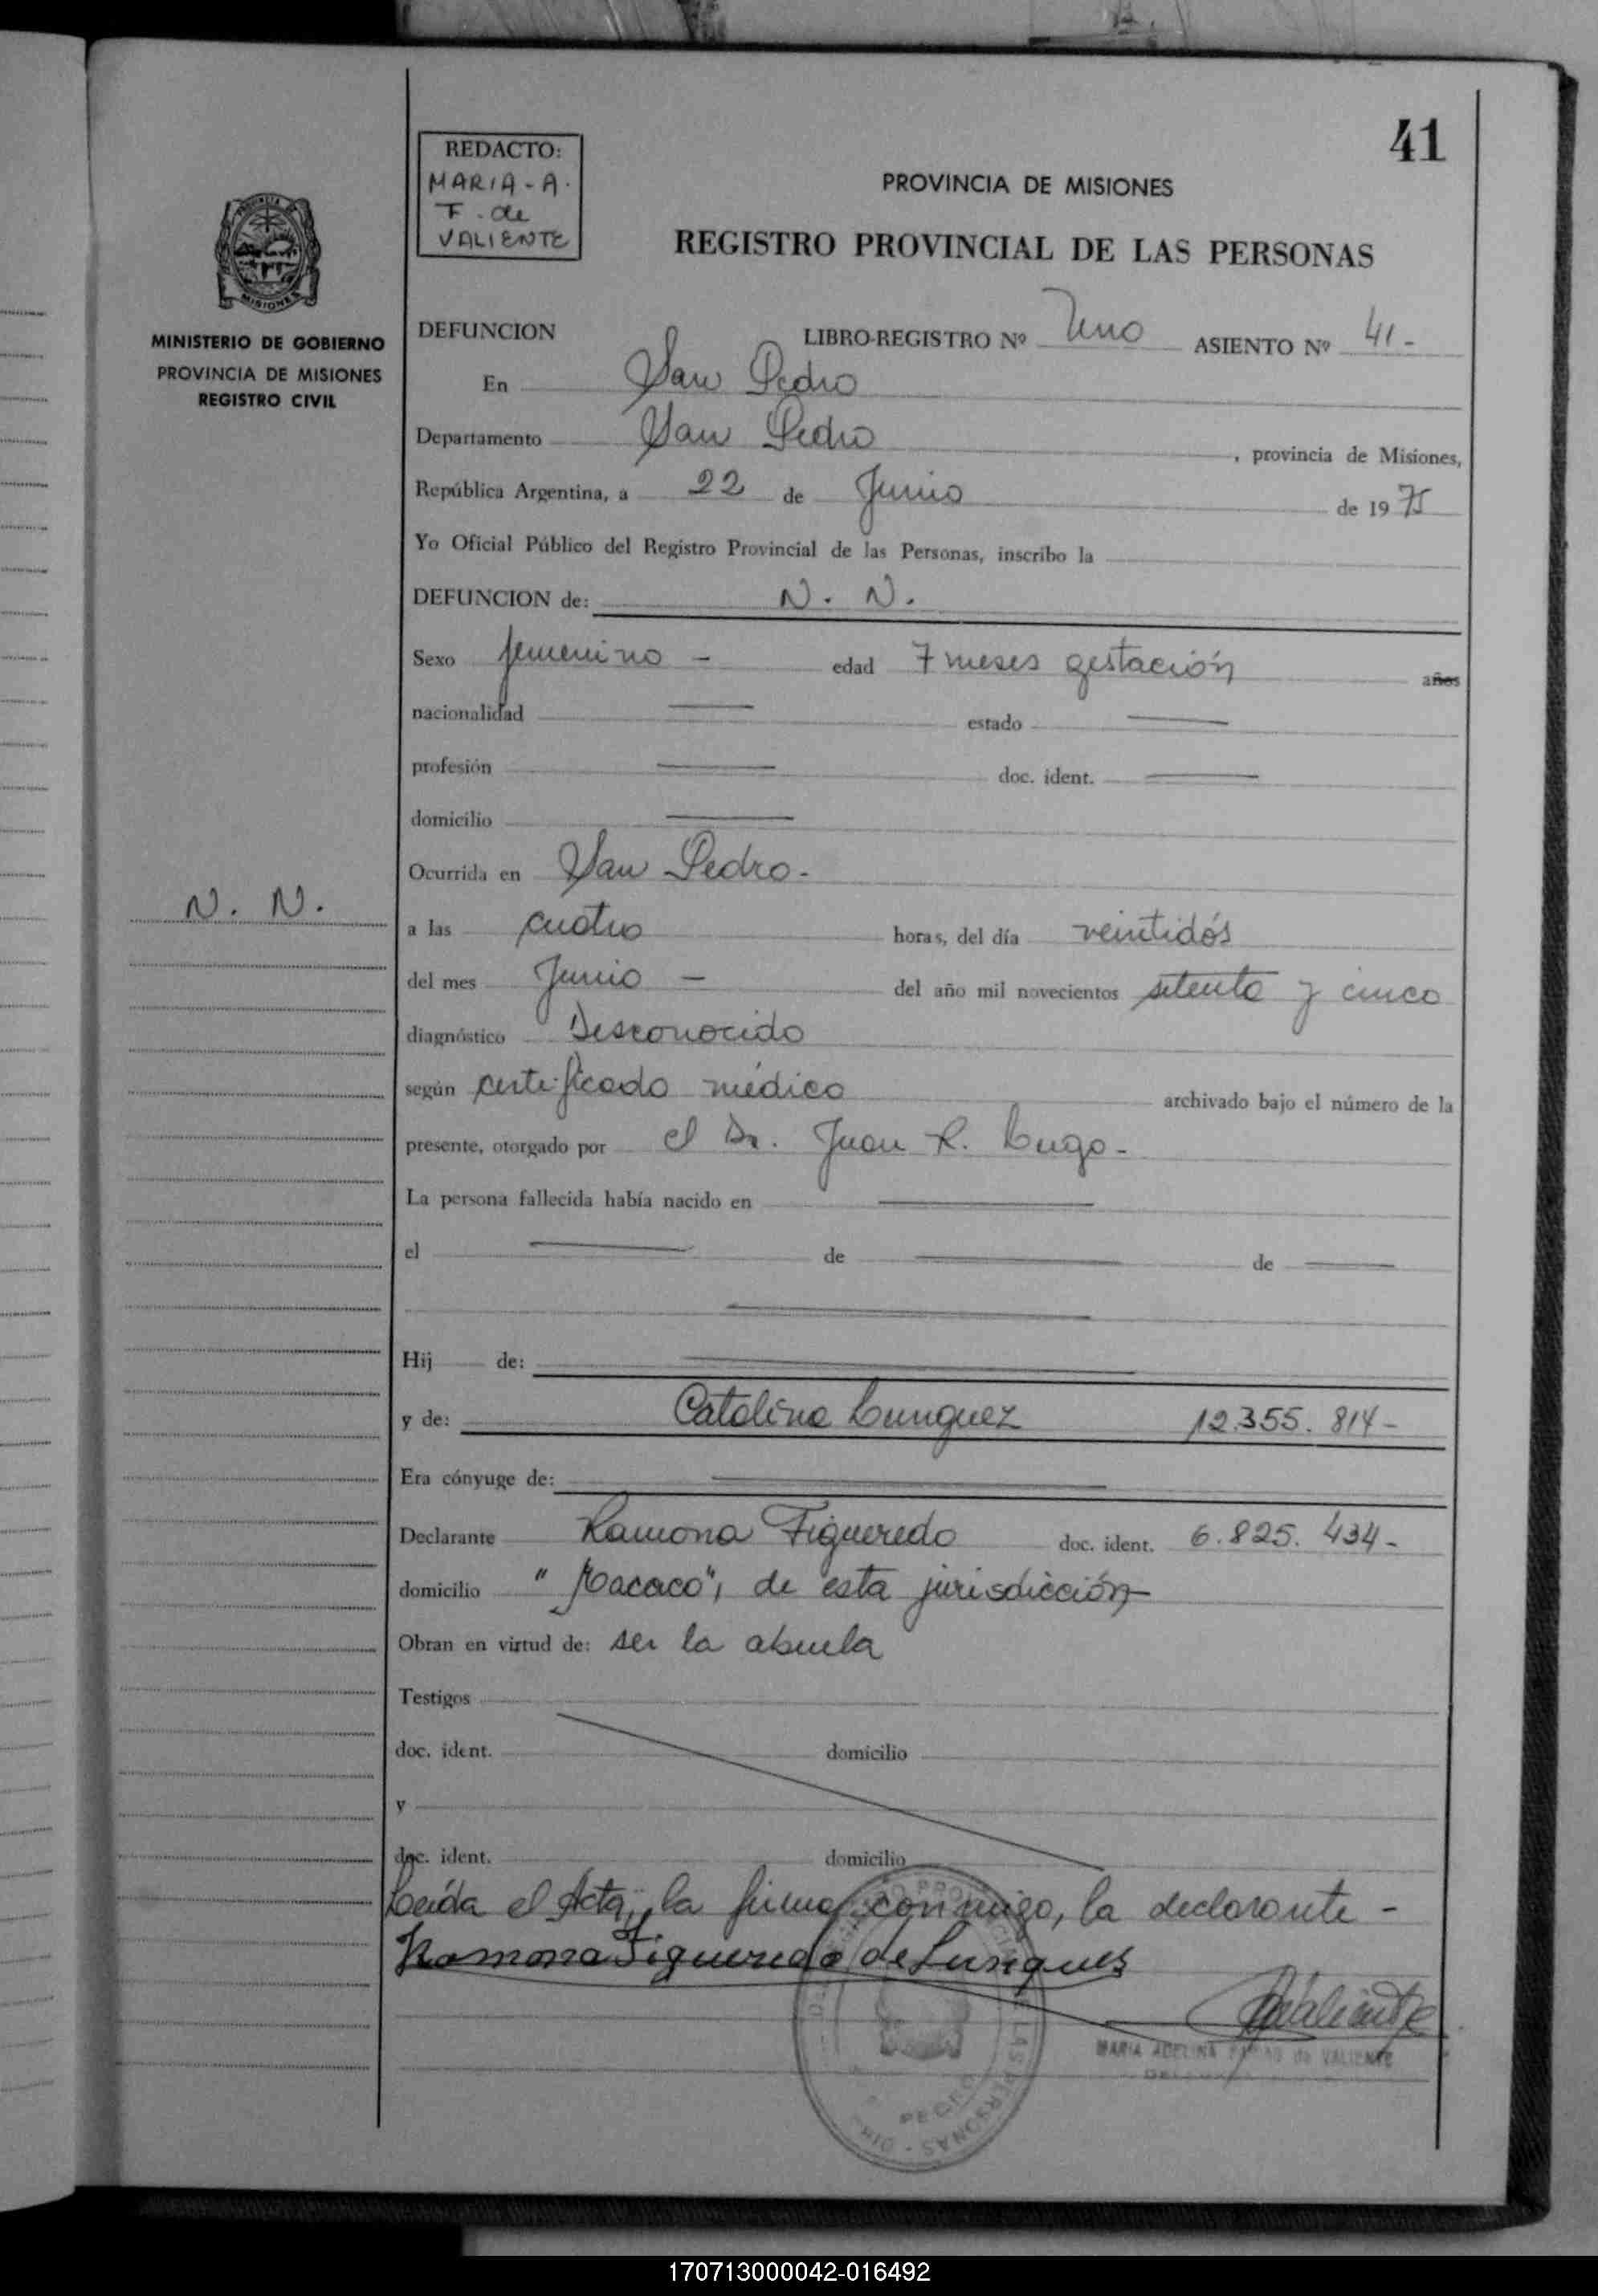 41
REDACTO:
MARIA-A.
F. de
VALIENTE
PROVINCIA DE MISIONES
REGISTRO PROVINCIAL DE LAS PERSONAS
MISIONES
MINISTERIO DE GOBIERNO
PROVINCIA DE MISIONES
REGISTRO CIVIL
DEFUNCION LIBRO-REGISTRO Nº Uno ASIENTO Nº 41-
En San Pedro
Departamento San Pedro , provincia de Misiones,
República Argentina, a 22 de Junio de 1975
Yo Oficial Público del Registro Provincial de las Personas, inscribo la
DEFUNCION de: N. N.
Sexo femenino - edad 7 meses gestación años
nacionalidad estado
profesión doc. ident.
domicilio
Ocurrida en San Pedro.
N. N.
a las cuatro horas, del día veintidós
del mes Junio - del año mil novecientos setenta y cinco
diagnóstico Desconocido
según certificado médico archivado bajo el número de la
presente, otorgado por el Dr. Juan R. Lugo-
La persona fallecida había nacido en
el de de
Hij de:
y de: Catalina Lunguez 12.355.814-
Era cónyuge de:
Declarante Ramona Figueredo doc. ident. 6.825.434-
domicilio "Macaco", de esta jurisdicción
Obran en virtud de: ser la abuela
Testigos
doc. ident. domicilio
y
doc. ident. domicilio
Leída el Acta, la firma conmigo, la declarante -
Ramona Figueredo de Lungues
MARIA ADELINA de VALIENTE
LAS PERSONAS
170713000042-016492